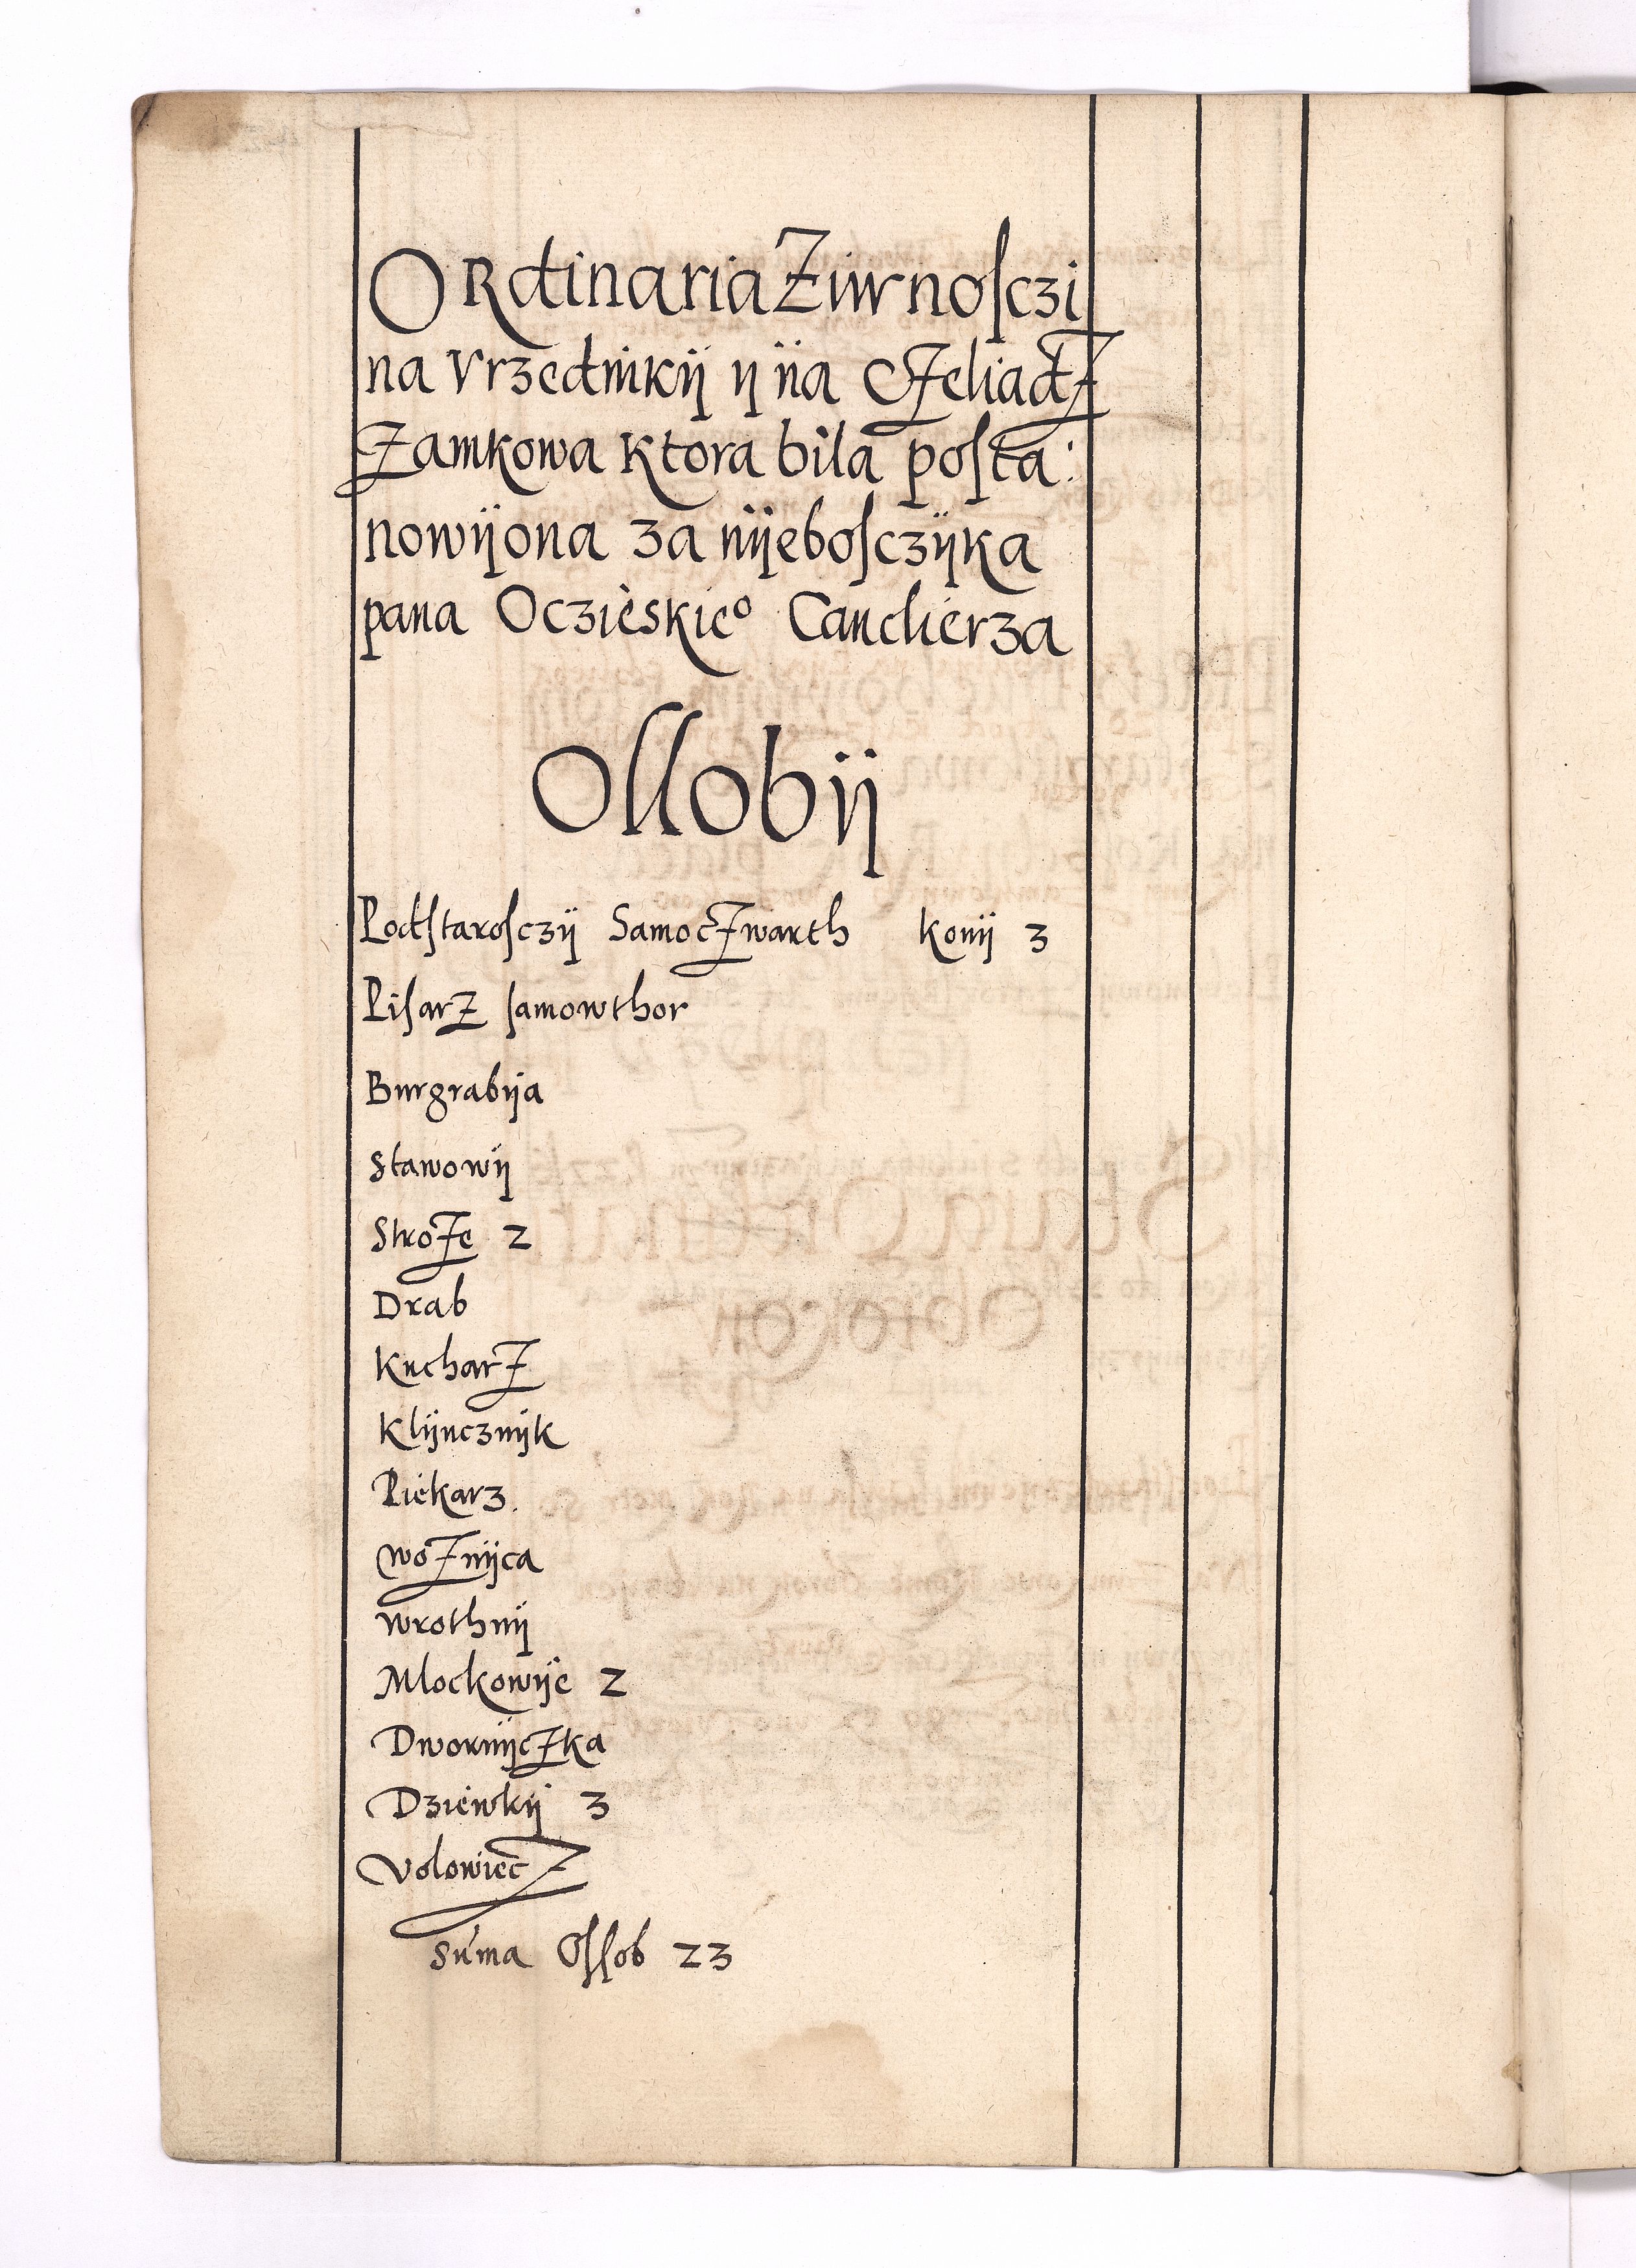 ORdinaria Ziwnosczi
na Vrzednikÿ ÿ na CZeliadZ
Zamkowa Ktora bila posta:
nowÿona za nÿebosczÿka
pana Oczieskie° Canclierza
Ossobÿ
Podstarosczÿ SamocZwarth Konÿ 3
PisarZ samowthor
Burgrabÿa
Stawowÿ
StroZe 2
Drab
KucharZ
Klÿucznÿk
Piekarz.
WoZnÿca
Wrothnÿ
Mlockowÿe 2
DwornÿcZka
Dziewkÿ 3
VolowiecZ
Suma Ossob 23